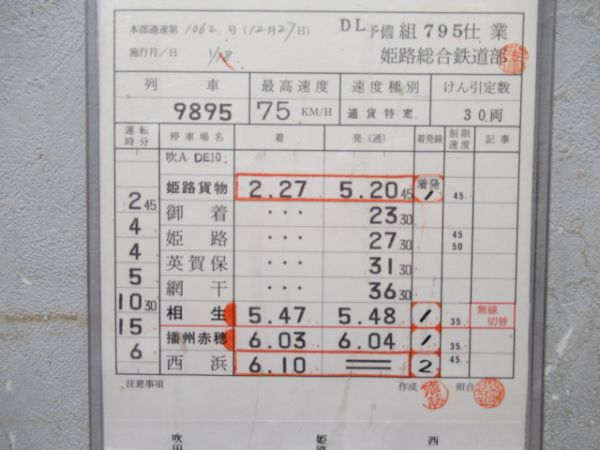 本部通達第1062号(12月27日) DL予備組795仕業
施行月/日 1/18 姫路総合鉄道部
列車 最高速度 速度種別 けん引定数
9895 75 KM/H 通貨特定 30両
運転時分 停車場名 着 発(通) 着発線 制限速度 記事
吹A DE10
姫路貨物 2.27 5.20 45 着発 1 45
2 45 御着 ・・・ 23 30
4 姫路 ・・・ 27 30 45 50
4 英賀保 ・・・ 31 30
5 網干 ・・・ 36 30
10 30 相生 5.47 5.48 1 35 無線切替
15 播州赤穂 6.03 6.04 1 35
6 西浜 6.10 2 45
注意事項 作成 照合
吹田 姫路 西